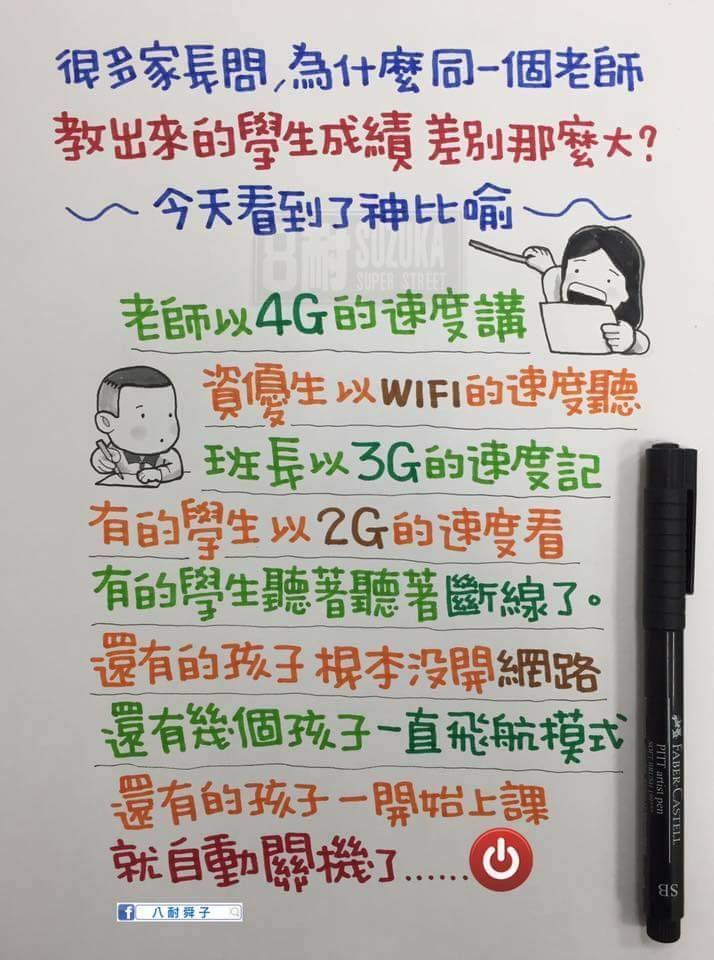 很多家長問,為什麼同一個老師
教出來的學生成績 差別那麼大?
～ 今天看到了神比喻 ～
8耐 SUZUKA
SUPER STREET
老師以4G的速度講
資優生以WIFI的速度聽
班長以3G的速度記
有的學生以2G的速度看
有的學生聽著聽著斷線了。
還有的孩子根本沒開網路
還有幾個孩子一直飛航模式
還有的孩子一開始上課
就自動關機了......
f 八耐舜子
FABER-CASTELL
PITT artist pen
SB